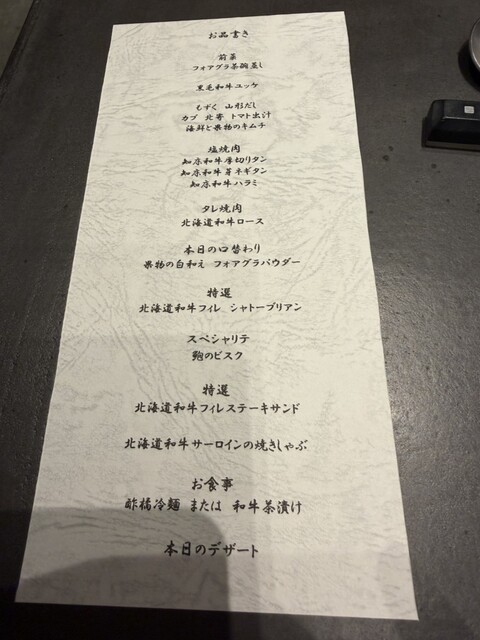 お品書き
前菜
フォアグラ茶碗蒸し
黒毛和牛ユッケ
もずく 山形だし
カブ 北寄 トマト出汁
海鮮と果物のキムチ
塩焼肉
知床和牛厚切りタン
知床和牛芽ネギタン
知床和牛ハラミ
タレ焼肉
北海道和牛ロース
本日の口替わり
果物の白和え フォアグラパウダー
特選
北海道和牛フィレ シャトーブリアン
スペシャリテ
鮑のビスク
特選
北海道和牛フィレステーキサンド
北海道和牛サーロインの焼きしゃぶ
お食事
酢橘冷麺 または 和牛茶漬け
本日のデザート